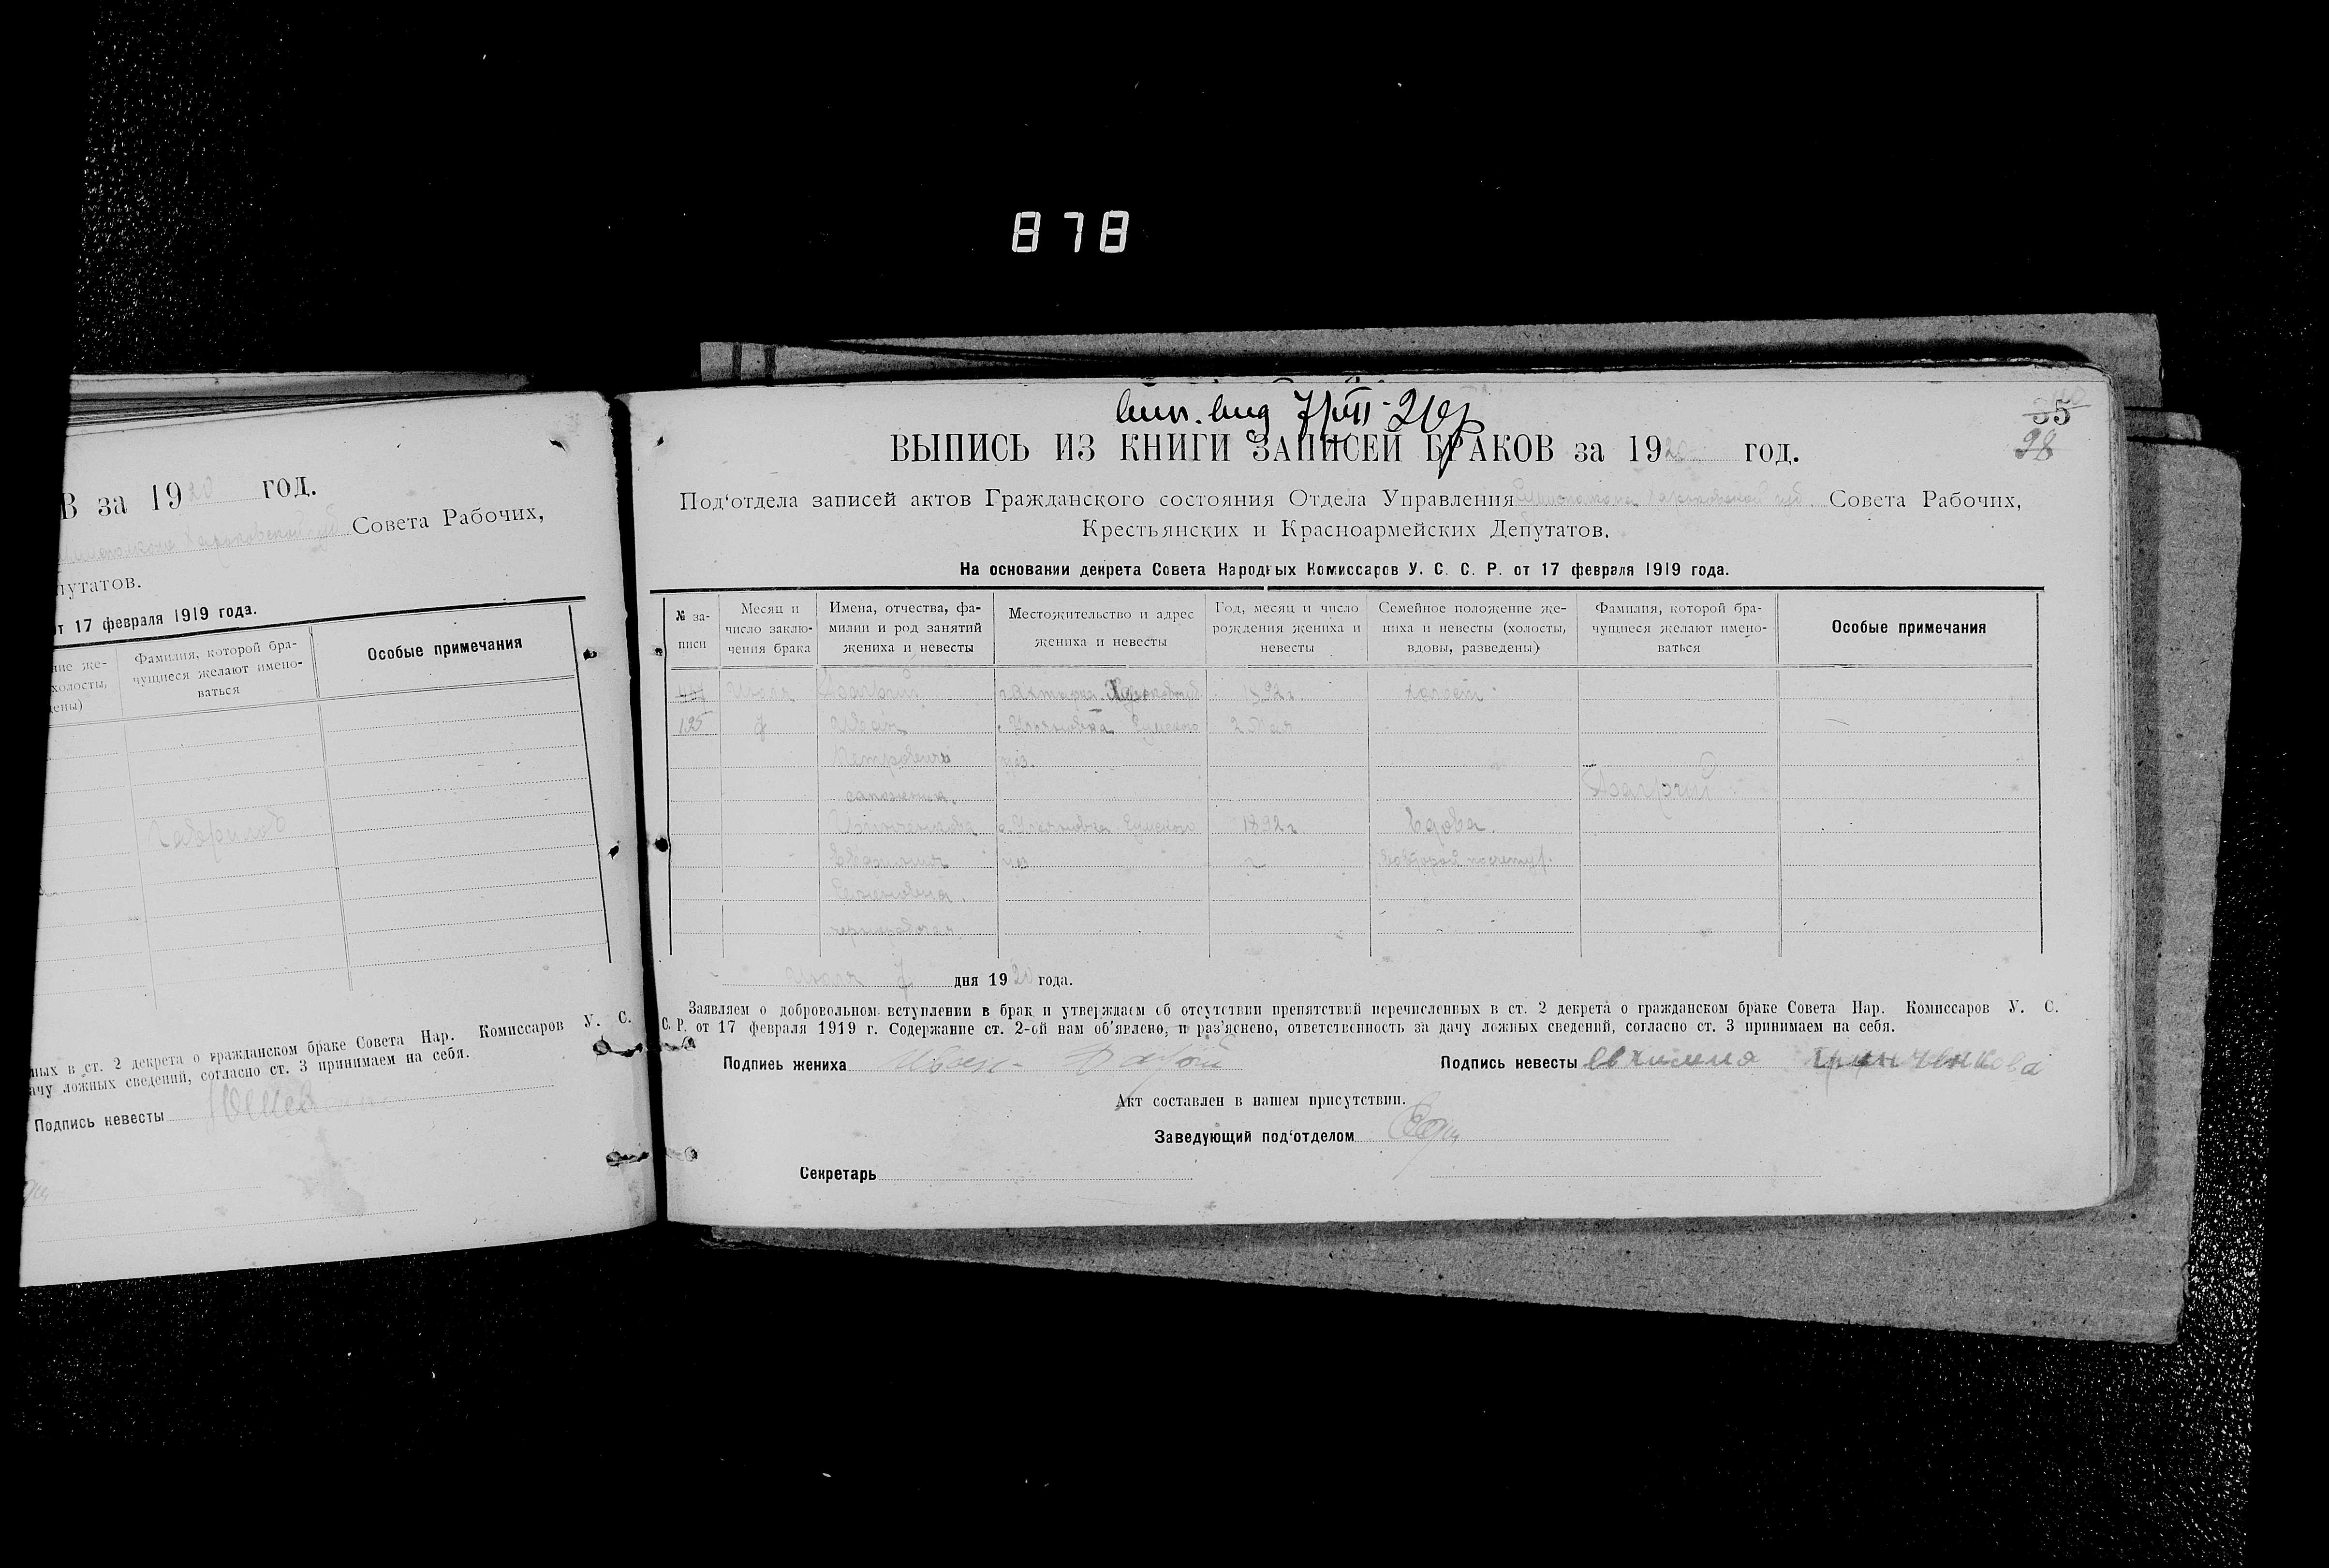 878
В за 1920 год.
Совета Рабочих,
путатов.
от 17 февраля 1919 года.
ние же-
холосты,
ены)
Фамилия, которой бра-
чущиеся желают имено-
ваться
Особые примечания
Гаврилов
ных в ст. 2 декрета о гражданском браке Совета Нар. Комиссаров У. С.
ачу ложных сведений, согласно ст. 3 принимаем на себя.
Подпись невесты
35
98
ВЫПИСЬ ИЗ КНИГИ ЗАПИСЕЙ БРАКОВ за 1920 год.
Под‘отдела записей актов Гражданского состояния Отдела Управления Харьковской губ. Совета Рабочих,
Крестьянских и Красноармейских Депутатов.
На основании декрета Совета Народных Комиссаров У. С. С. Р. от 17 февраля 1919 года.
№ за-
писи
Месяц и
число заклю-
чения брака
Имена, отчества, фа-
милии и род занятий
жениха и невесты
Местожительство и адрес
жениха и невесты
Год, месяц и число
рождения жениха и
невесты
Семейное положение же-
ниха и невесты (холосты,
вдовы, разведены)
Фамилия, которой бра-
чущиеся желают имено-
ваться
Особые примечания
Июля г. Ахтырка 1892 г. холост
125 7 Иван 2 Мая
Петрович уез.
сапожник.
1892 г. Вдова.
Евфимия уез
Семеновна
Июля 7 дня 1920 года.
Заявляем о добровольном вступлении в брак и утверждаем об отсутствии препятствий перечисленных в ст. 2 декрета о гражданском браке Совета Нар. Комиссаров У. С.
С. Р. от 17 февраля 1919 г. Содержание ст. 2-ой нам об’явлено, и раз’яснено, ответственность за дачу ложных сведений, согласно ст. 3 принимаем на себя.
Подпись жениха Иван Подпись невесты Евхимия Гринченкова
Акт составлен в нашем присутствии.
Заведующий под‘отделом
Секретарь